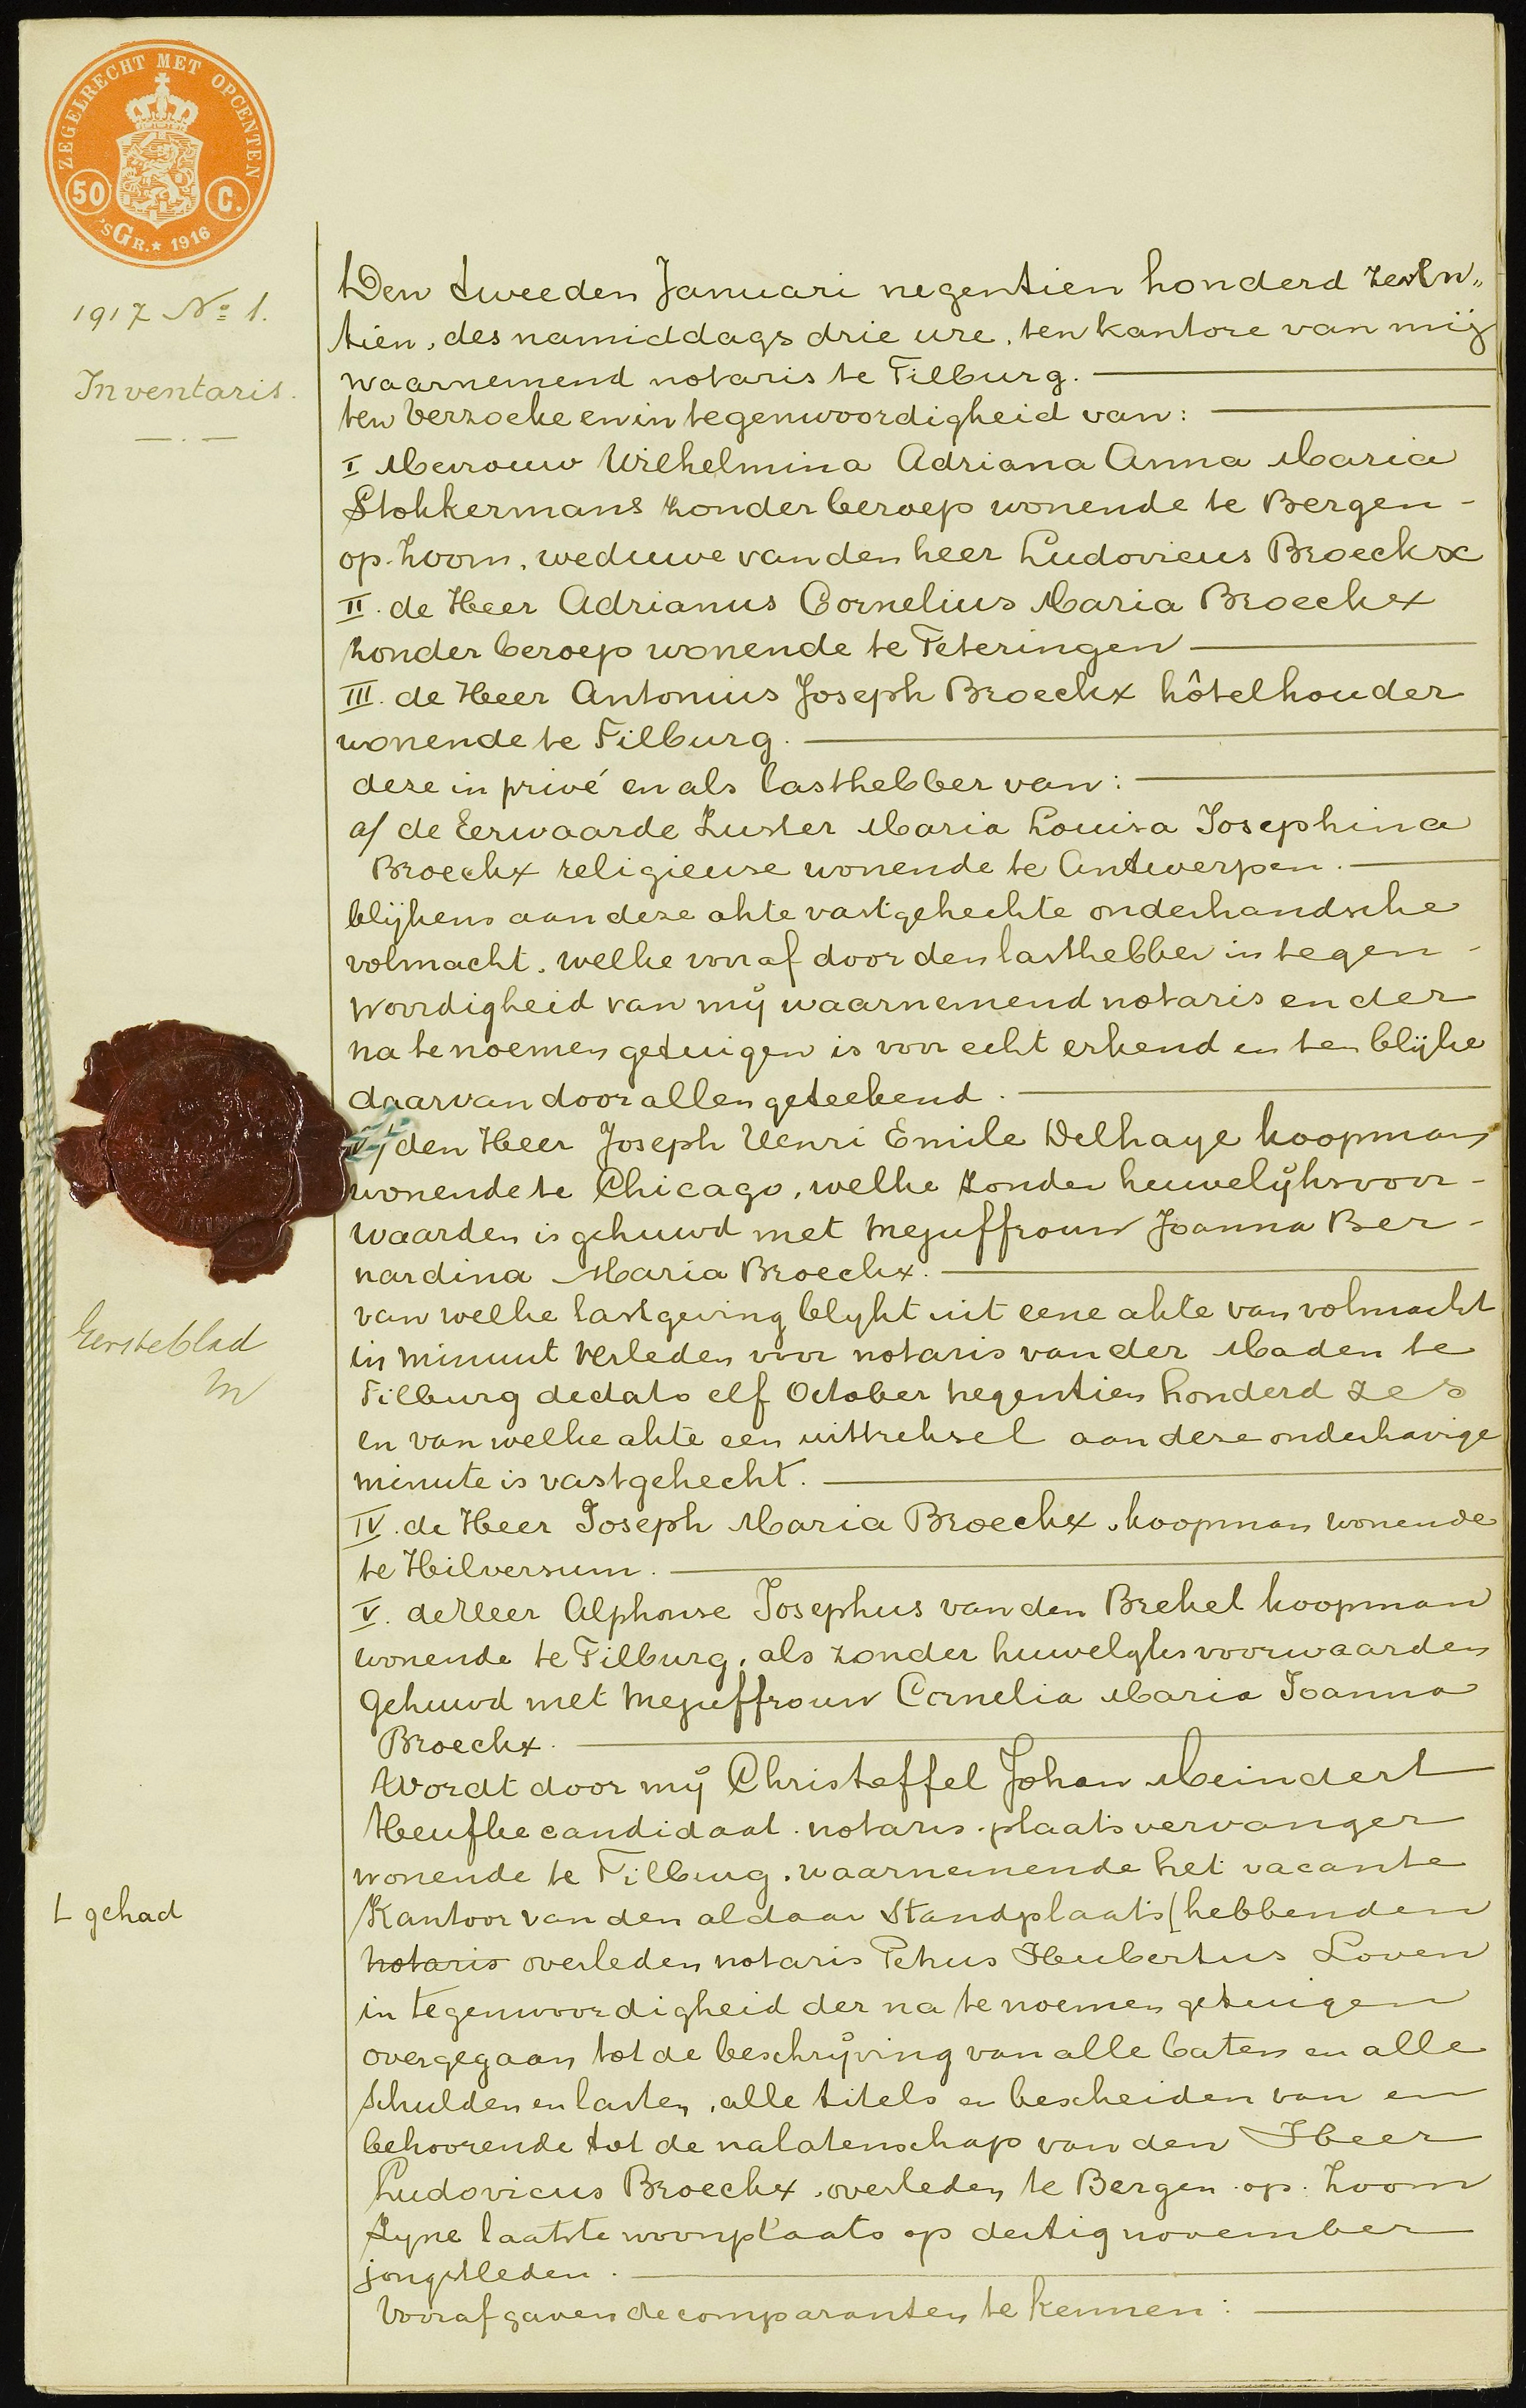 ZEGELRECHT MET OPCENTEN
50 C.
'SGR. * 1916
1917 No 1.
Inventaris.
Den tweeden Januari negentien honderd zeven„
tien, des namiddags drie ure, ten kantore van mij
waarnemend notaris te Tilburg.
ten verzoeke en in tegenwoordigheid van:
I Mevrouw Wilhelmina Adriana Anna Maria
Stokkermans zonder beroep wonende te Bergen-
op-Zoom, weduwe van den heer Ludovicus Broeckx
II. de Heer Adrianus Cornelius Maria Broeckx
zonder beroep wonende te Teteringen
III. de Heer Antonius Joseph Broeckx hôtelhouder
wonende te Tilburg.
deze in privé en als lasthebber van:
a/ de Eerwaarde Zuster Maria Louisa Josephina
Broeckx religieuse wonende te Antwerpen.
blijkens aan deze akte vastgehechte onderhandsche
volmacht, welke vooraf door den lasthebber in tegen-
woordigheid van mij waarnemend notaris en der
na te noemen getuigen is voor echt erkend en ten blijke
daarvan door allen geteekend.
den Heer Joseph Henri Emile Delhaye koopman
wonende te Chicago, welke zonder huwelijksvoor-
waarden is gehuwd met Mejuffrouw Joanna Ber-
nardina Maria Broeckx.
van welke lastgeving blykt uit eene akte van volmacht
in minuut verleden voor notaris van der Maden te
Tilburg dedato elf October negentien honderd zes
en van welke akte een uittreksel aan deze onderhavige
minute is vastgehecht.
IV. de Heer Joseph Maria Broeckx, koopman wonende
te Hilversum.
V. de Heer Alphonse Josephus van den Brekel koopman
wonende te Tilburg, als zonder huwelyksvoorwaarden
gehuwd met Mejuffrouw Cornelia Maria Joanna
Broeckx.
Wordt door mij Christoffel Johan Meindert
Heufke candidaat-notaris-plaatsvervanger
wonende te Tilburg, waarnemende het vacante
Kantoor van den aldaar Standplaats [hebbenden
notaris overleden notaris Petrus Hubertus Loven
in tegenwoordigheid der na te noemen getuigen
overgegaan tot de beschrijving van alle baten en alle
schulden en lasten, alle titels en bescheiden van en
behoorende tot de nalatenschap van den Heer
Ludovicus Broeckx, overleden te Bergen-op-Zoom
zyne laatste woonplaats op dertig november
jongstleden.
Vooraf gaven de comparanten te kennen:
Eersteblad
L gehad